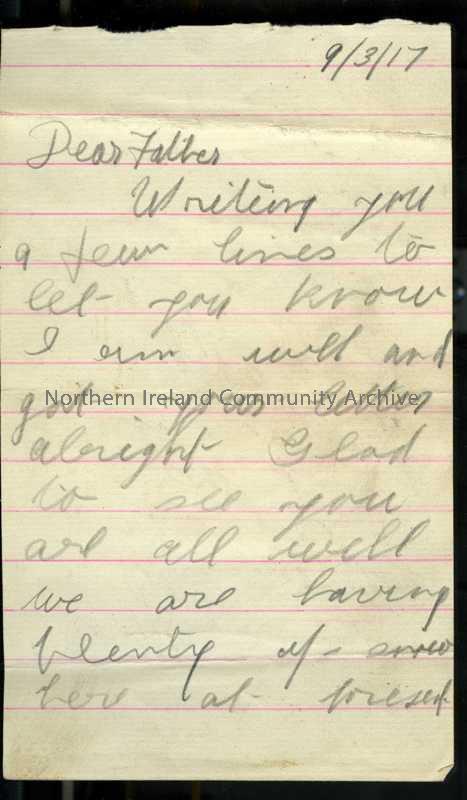 9/3/17
Dear Father
Writing you
a few lines to
let you know
I am well and
got your letter
Northern Ireland Community Archive
alright Glad
to see you
are all well
we are having
plenty of snow
here at present